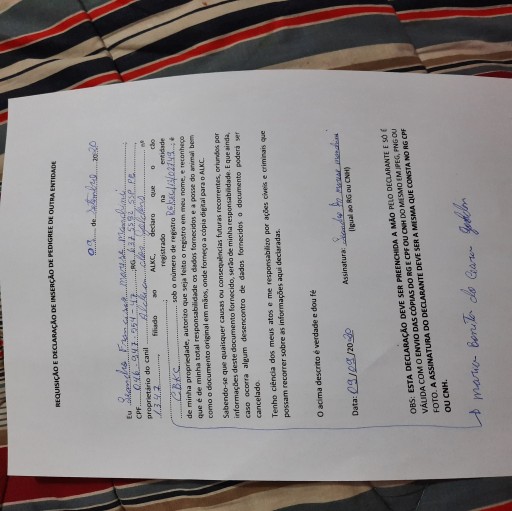 REQUISIÇÃO E DECLARAÇÃO DE INSERÇÃO DE PEDIGREE DE OUTRA ENTIDADE
09 de Setembro 2020
Eu
CPF RG
proprietário do canil nº
1347 filiado ao ALKC, declaro que o cão
registrado na entidade
CBKC sob o número de registro é
de minha propriedade, autorizo que seja feito o registro em meu nome, e reconheço
que é de minha total responsabilidade os dados fornecidos e a posse do animal bem
como o documento original em mãos, onde forneço a cópia digital para o ALKC.
Sabendo-se que quaisquer causas ou consequências futuras recorrentes, oriundos por
informações deste documento fornecido, serão de minha responsabilidade. E que ainda,
caso ocorra algum desencontro de dados fornecidos o documento poderá ser
cancelado.
Tenho ciência dos meus atos e me responsabilizo por ações cíveis e criminais que
possam recorrer sobre as informações aqui declaradas.
O acima descrito é verdade e dou fé
Data: 09/09/2020 Assinatura:
(Igual ao RG ou CNH)
OBS: ESTA DECLARAÇÃO DEVE SER PREENCHIDA A MÃO PELO DECLARANTE E SÓ É
VÁLIDA COM O ENVIO DAS CÓPIAS DO RG E CPF OU CNH DO MESMO EM JPEG, PNG OU
FOTO. A ASSINATURA DO DECLARANTE DEVE SER A MESMA QUE CONSTA NO RG CPF
OU CNH.
Bonito do